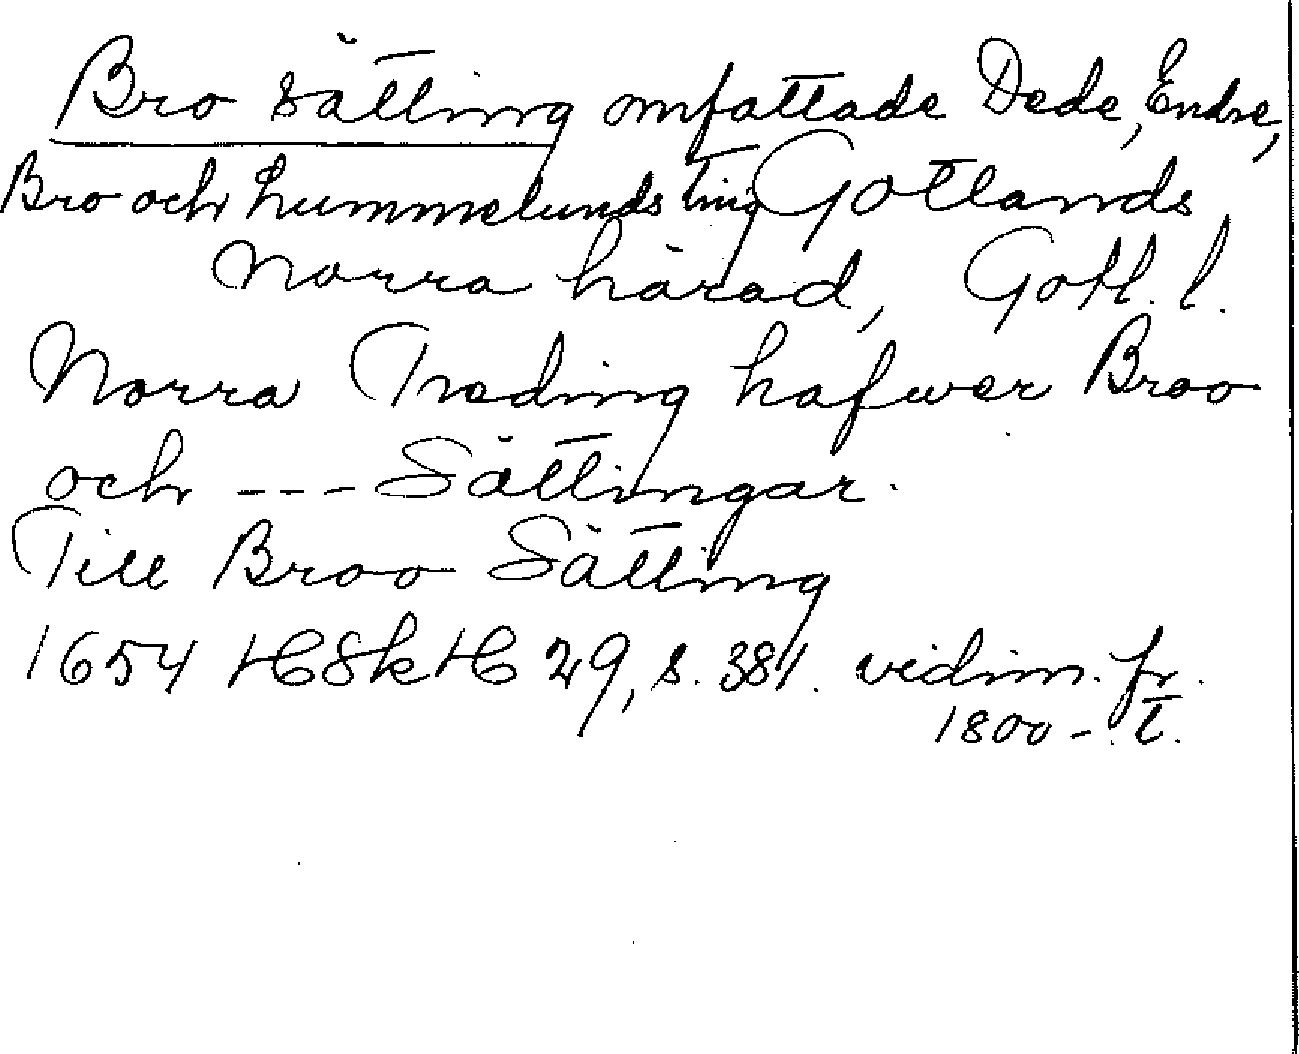 Bro sätting omfattade Dede, Endre,
Bro och hummelunds ting Gotlands
Norra härad, Gotl. l.
Norra Treding hafwer Broo
och --- Sättingar.
Till Broo Sätting
1654 HSkH 29, s. 381. vidim. fr.
1800-t.